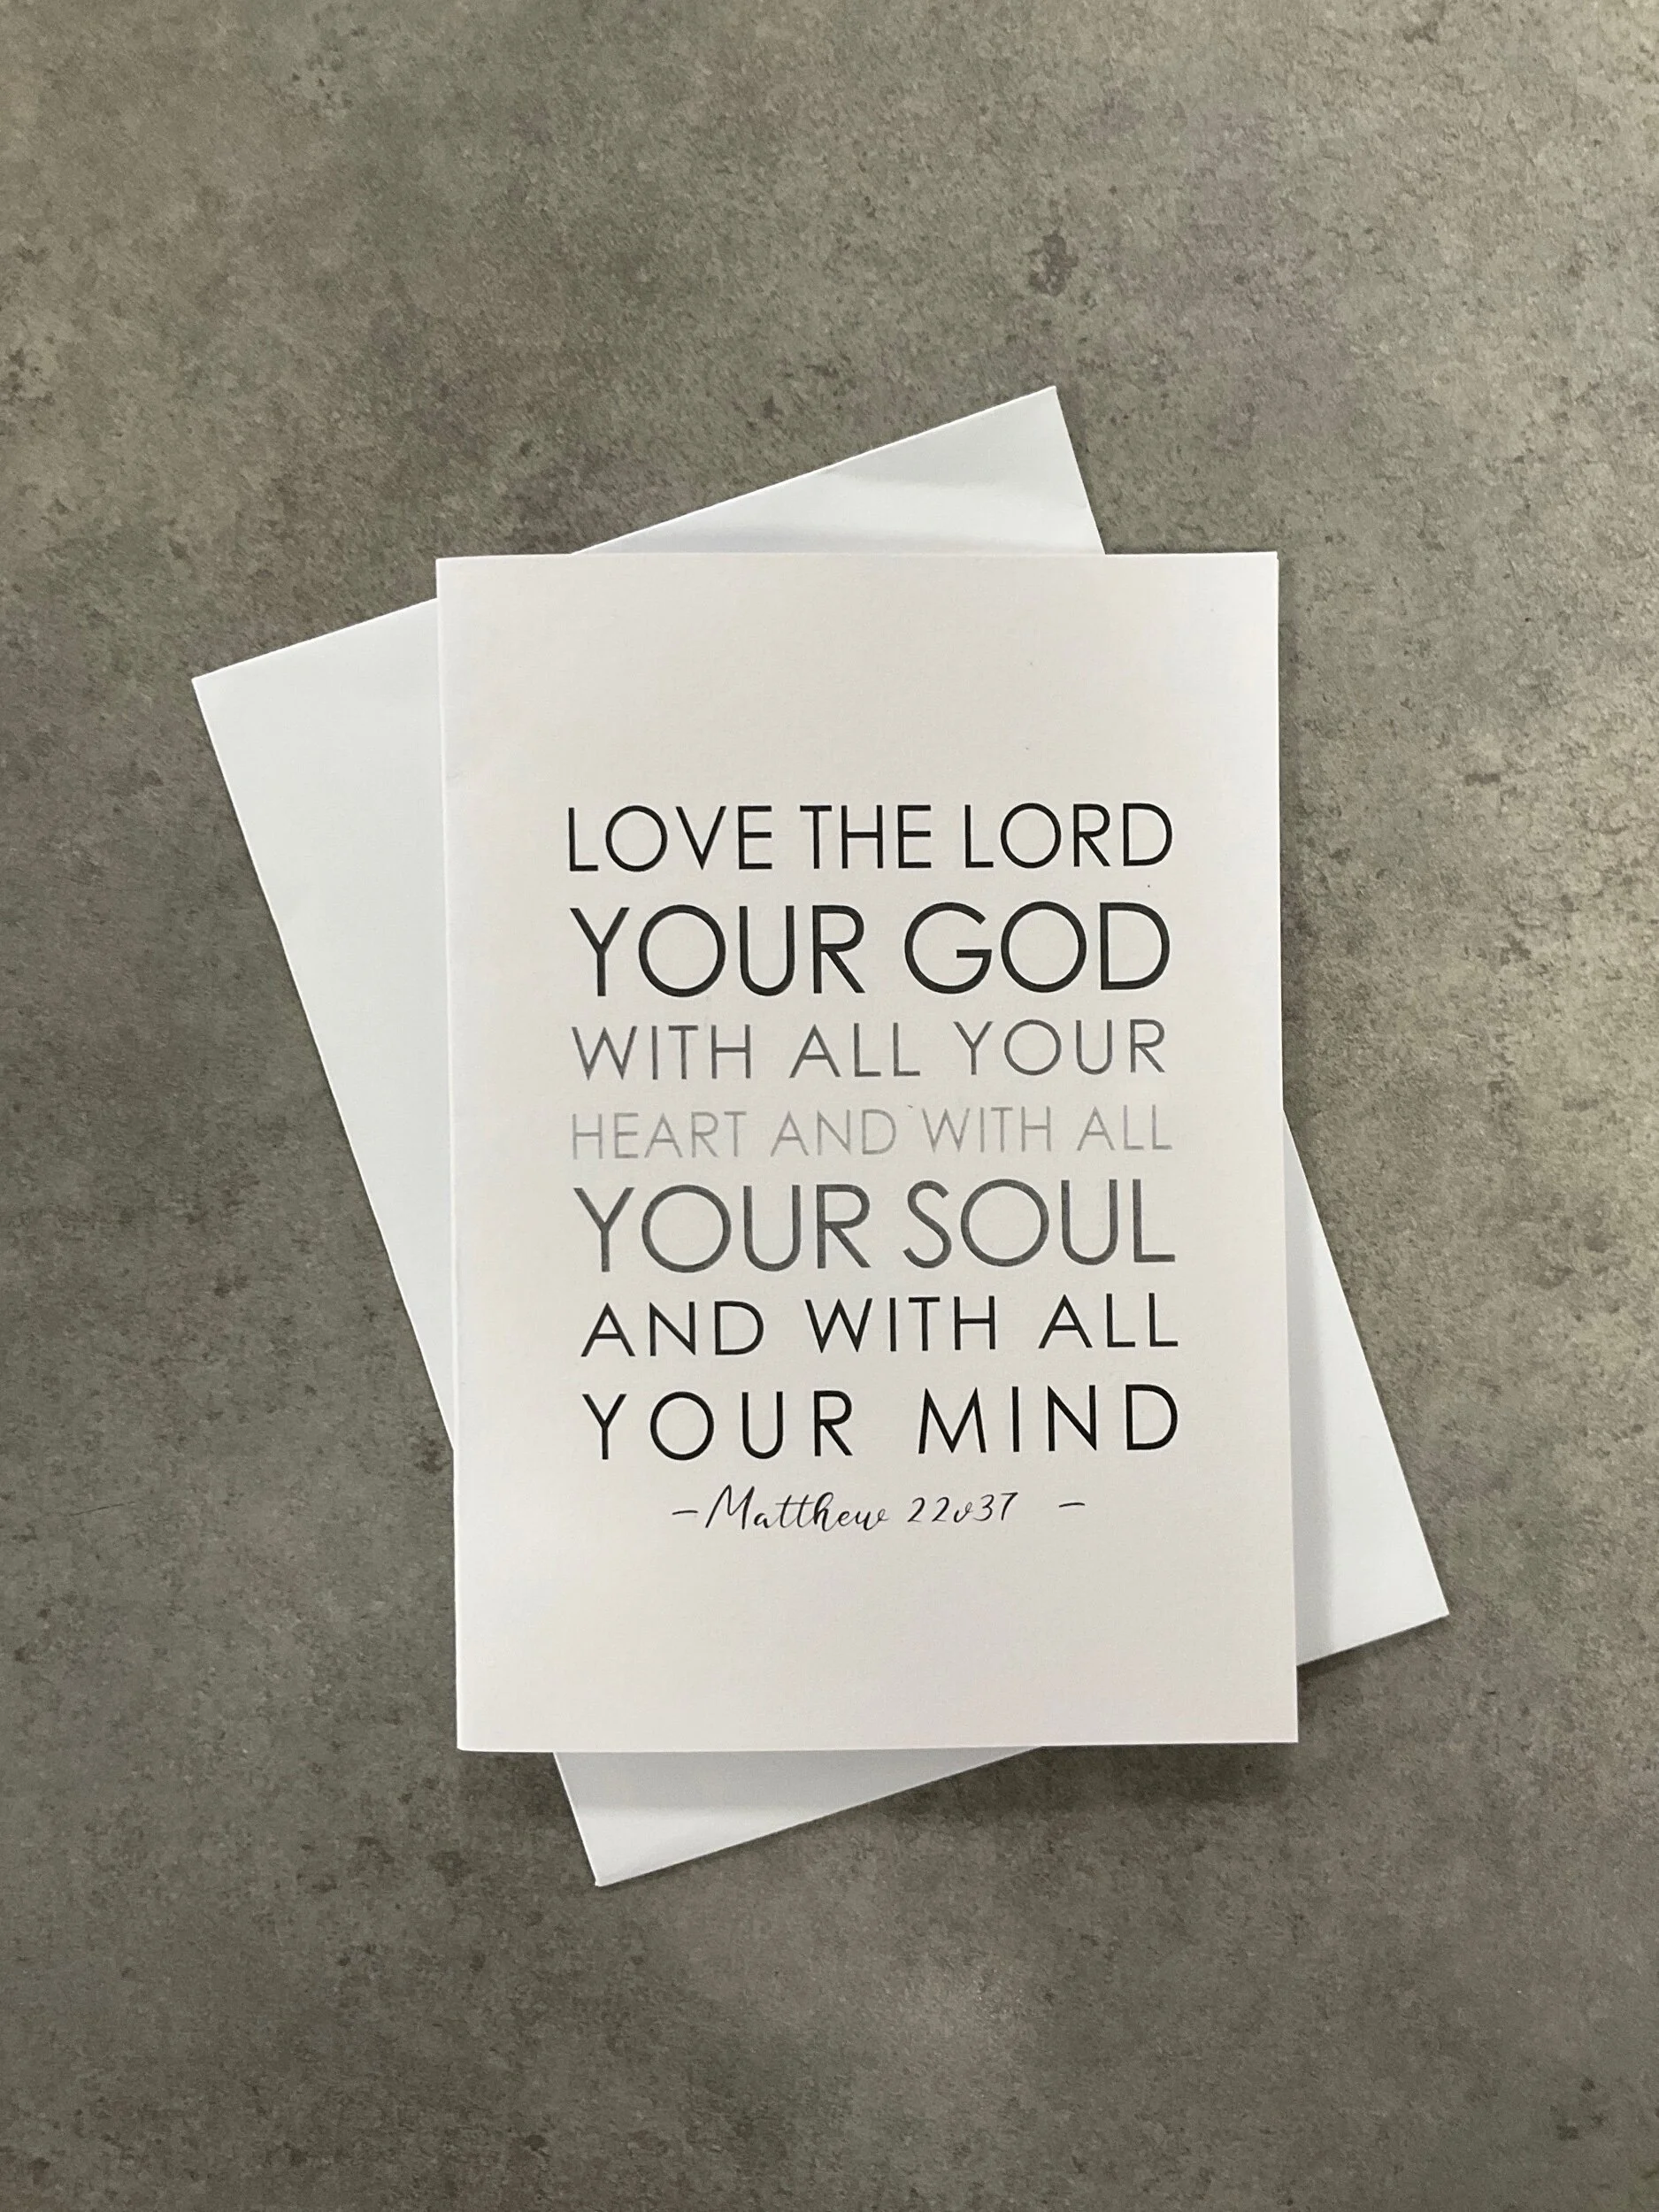 LOVE THE LORD
YOUR GOD
WITH ALL YOUR
HEART AND WITH ALL
YOUR SOUL
AND WITH ALL
YOUR MIND
-Matthew 22v37 -